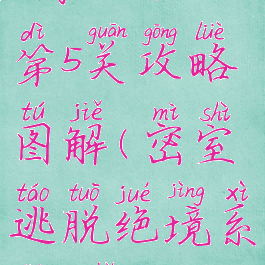 dì guān gōng lüè
第5关攻略
tú jiě mì shì
图解(密室
táo tuō jué jìng xì
逃脱绝境系